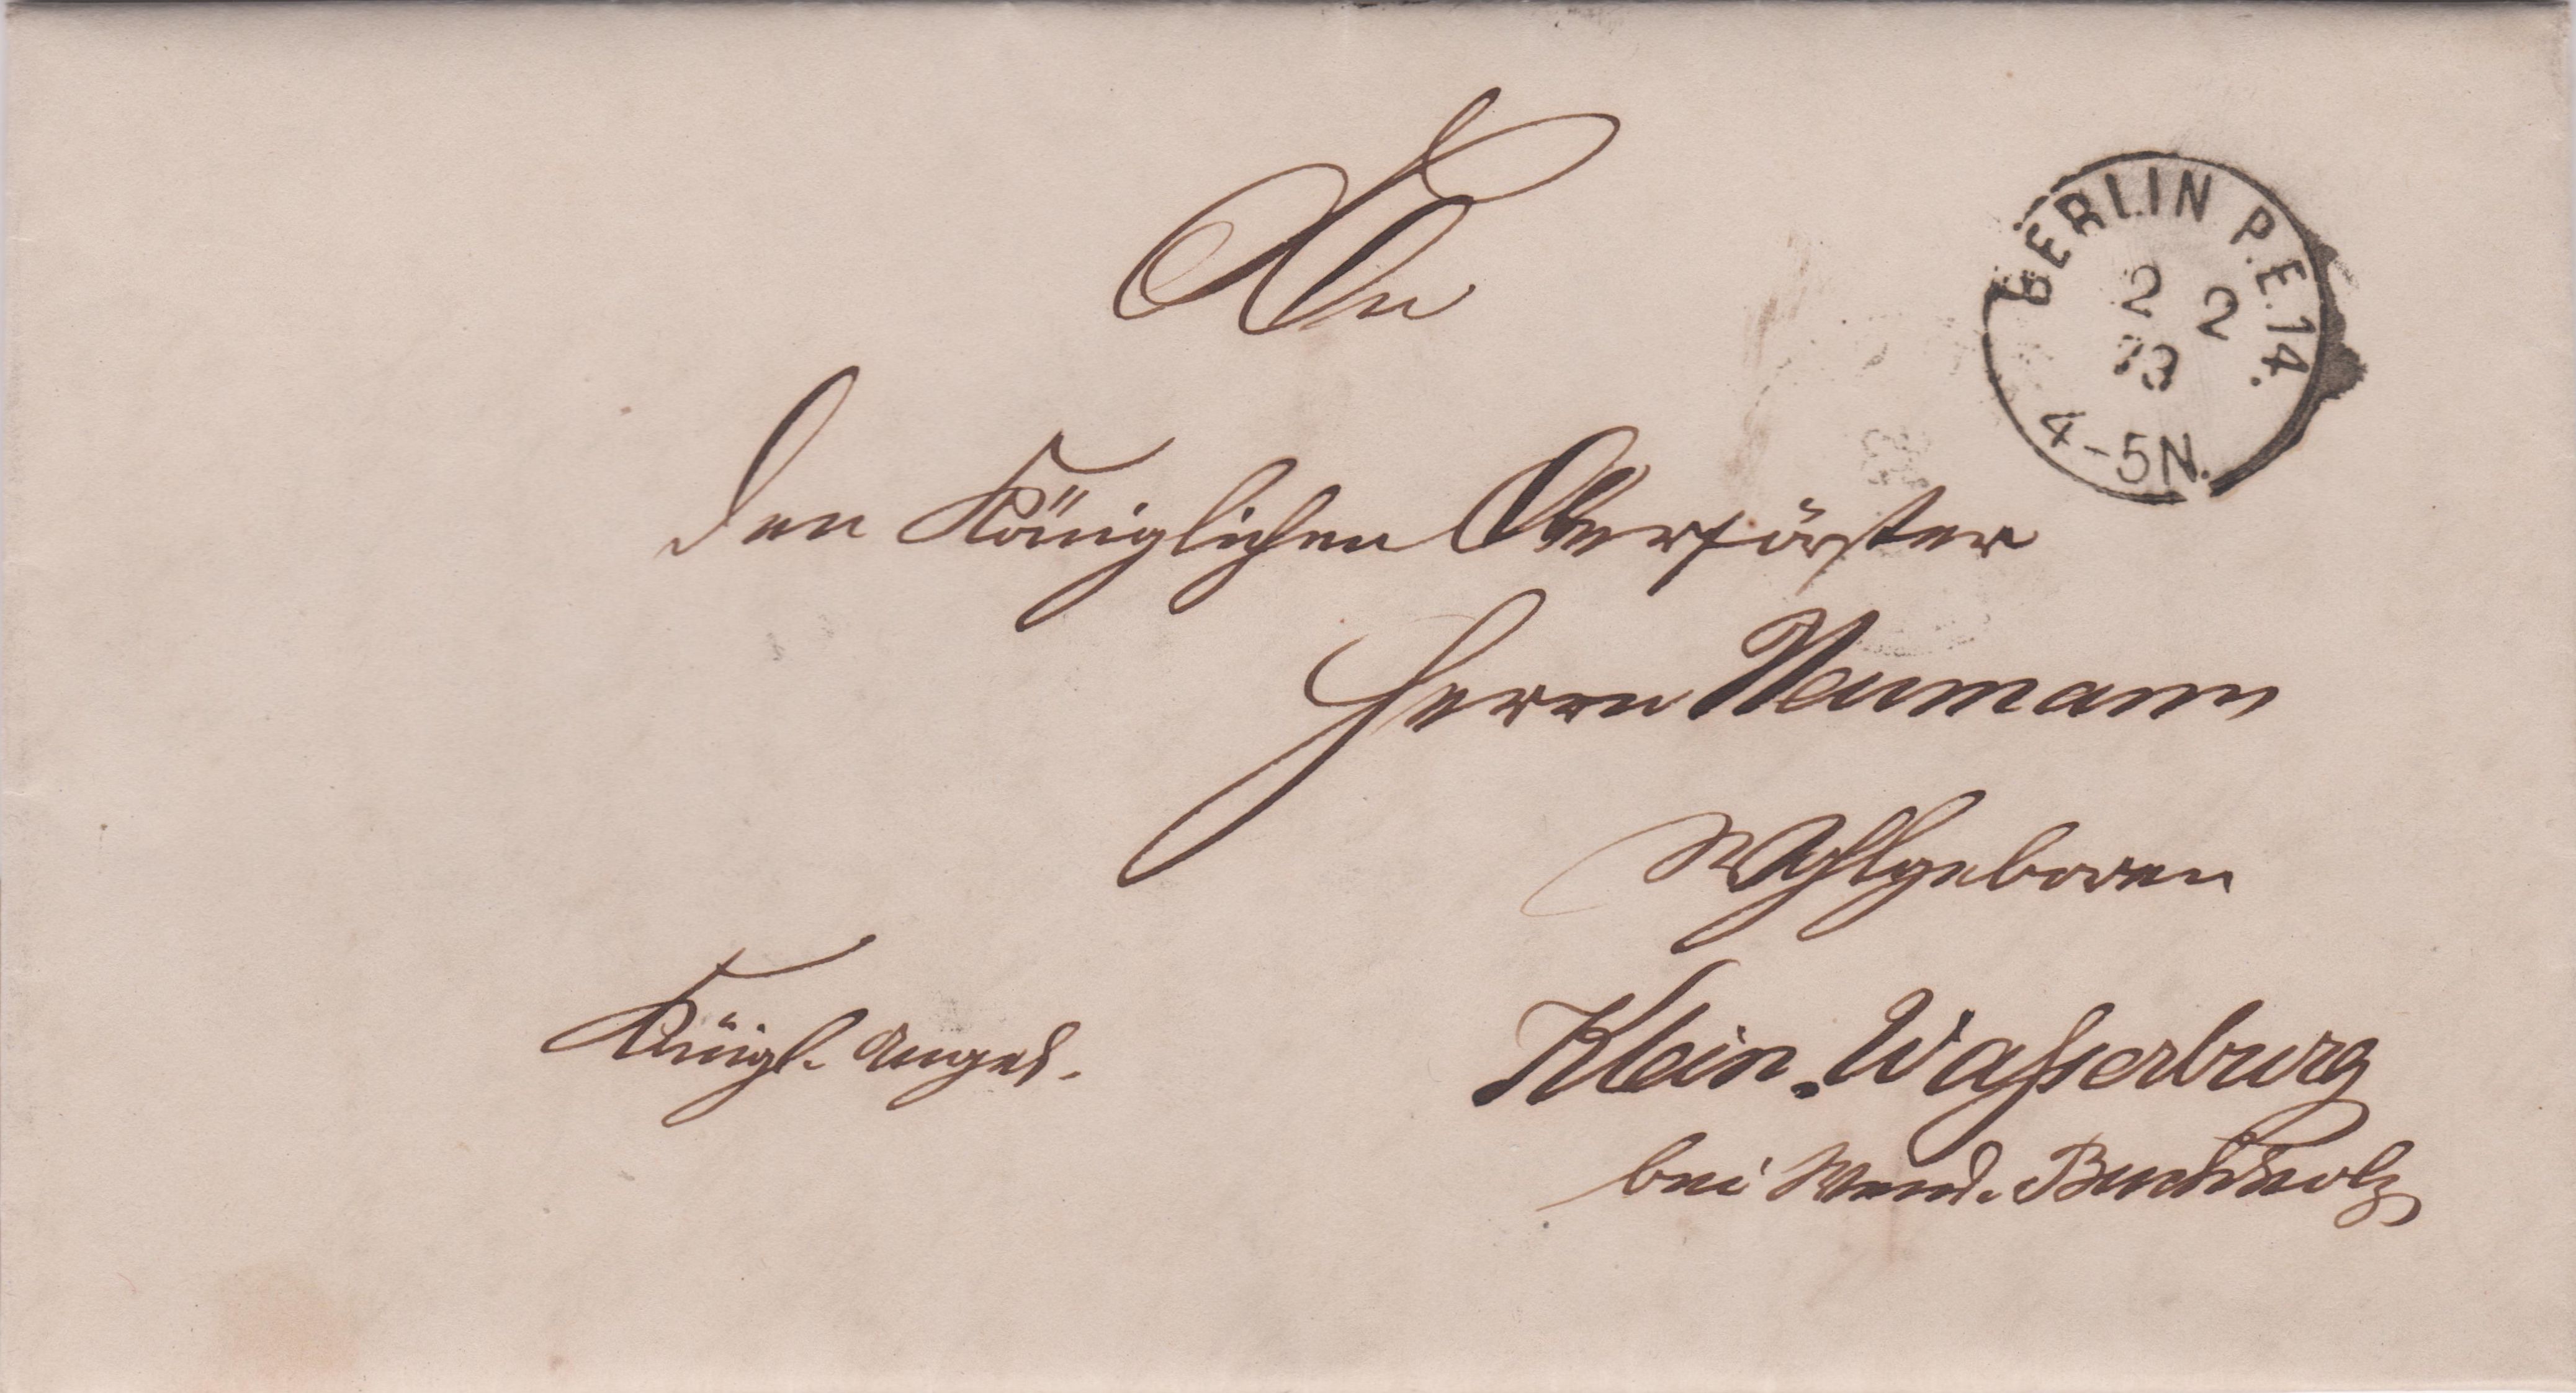 BERLIN P.E.14.
2 2
73
4-5N.
An
den Königlichen Oberförster
Herrn Neumann
Wohlgeboren
Königl. Anget.
Klein. Wasserburg
bei Wend. Buchholz